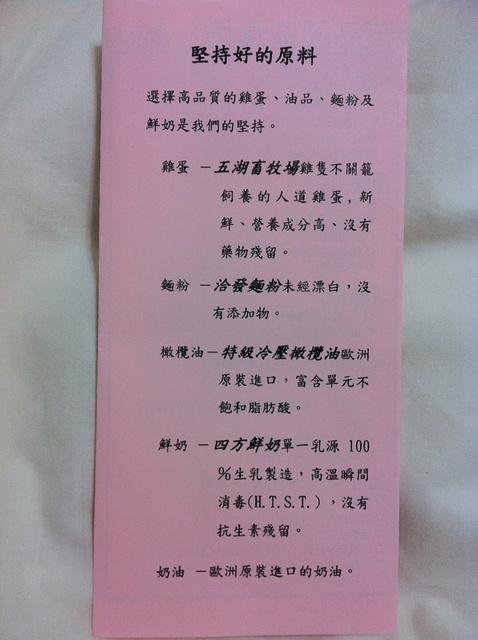 堅持好的原料
選擇高品質的雞蛋、油品、麵粉及
鮮奶是我們的堅持。
雞蛋 －五湖畜牧場雞隻不關籠
飼養的人道雞蛋,新
鮮、營養成分高、沒有
藥物殘留。
麵粉 －洽發麵粉未經漂白，沒
有添加物。
橄欖油－特級冷壓橄欖油歐洲
原裝進口，富含單元不
飽和脂肪酸。
鮮奶 －四方鮮奶單一乳源 100
％生乳製造，高溫瞬間
消毒(H.T.S.T.)，沒有
抗生素殘留。
奶油 －歐洲原裝進口的奶油。